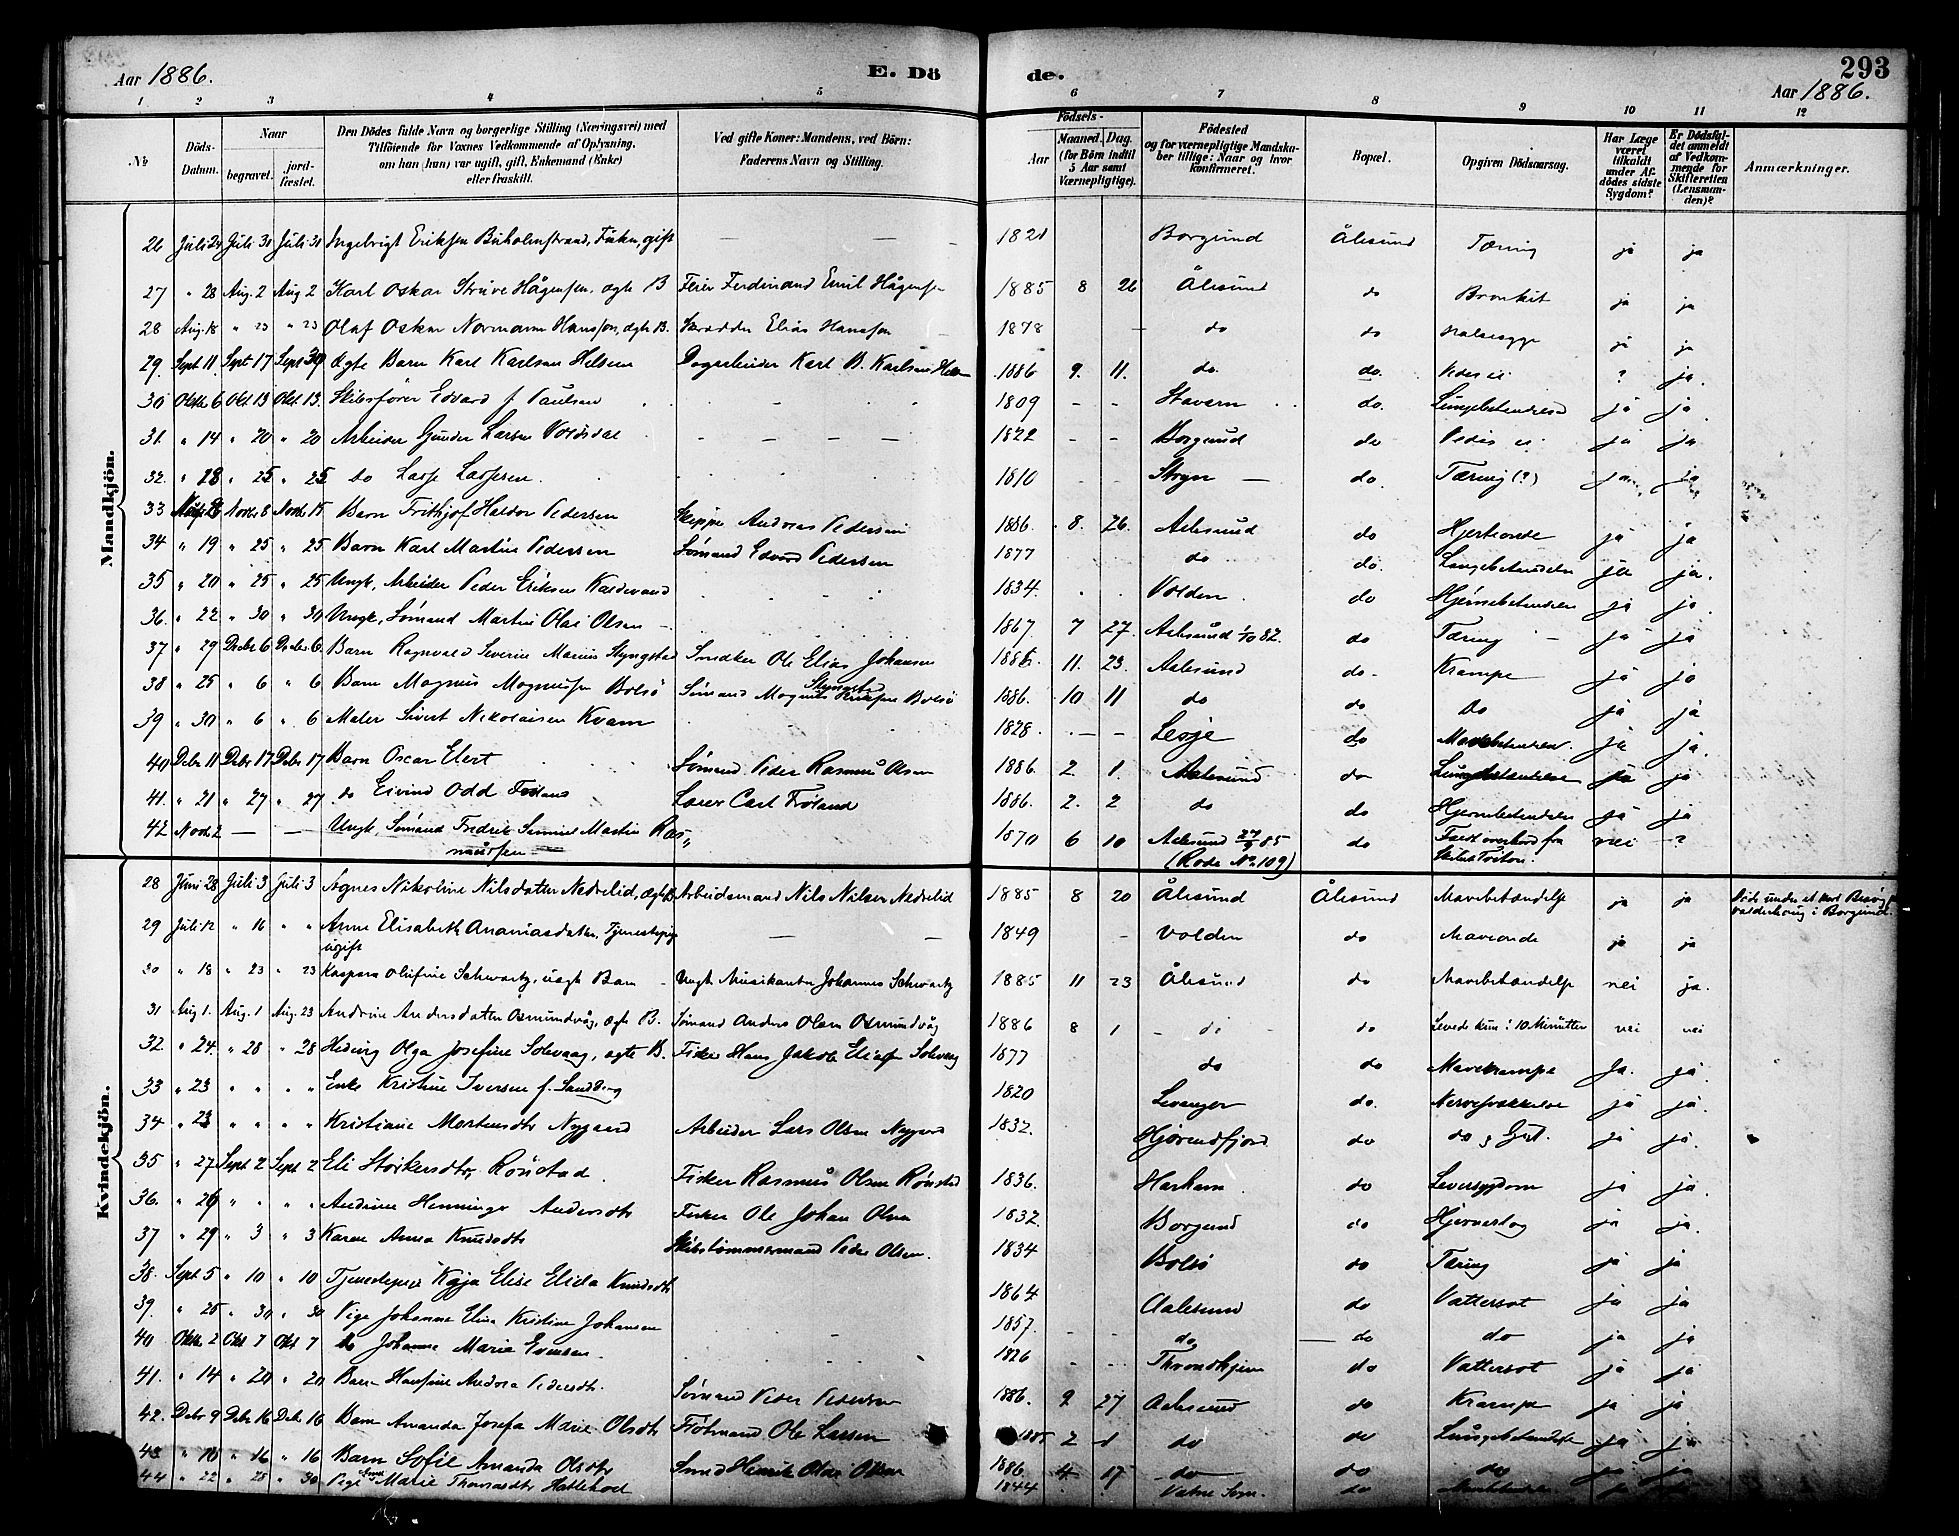 Aar 1886. E. Dö de. 293
Aar 1886.
1 2 3 4 5 6 7 8 9 10 11 12
No. Döds-Datum. Naar begravet. jord-fæstet.
Den Dödes fulde Navn og borgerlige Stilling (Næringsvei) med Tilföiende for Voxnes Vedkommende af Oplysning, om han (hun) var ugift, gift, Enkemand (Enke) eller fraskilt.
Ved gifte Koner: Mandens, ved Börn: Faderens Navn og Stilling.
Födsels- Aar Maaned. Dag. (for Börn indtil 5 Aar samt Værnepligtige).
Födested og for værnepligtige Mandska-ber tillige: Naar og hvor konfirmeret.
Bopæl.
Opgiven Dödsaarsag.
Har Læge været tilkaldt under Af-dödes sidste Sygdom?
Er Dödsfal-det anmeldt af Vedkom-mende for Skifteretten (Lensman-den)?
Anmærkninger.
Mandkjön.
26 Juli 24 Juli 31 Juli 31 Ingebrigt Eriksen Buholmstrand, gift — — 1821 Borgund Ålesund Tæring ja ja
27 " 28 Aug. 2 Aug 2 Karl Oskar Struve Hågensen, ægte B Feier Ferdinand Emil Hågensen 1885 8 26 Ålesund do Bronkit ja ja
28 Aug. 18 " 23 " 23 Olaf Oskar Normann Hansen, ægte B. Skrædder Elias Hansen 1878 — do do Halssyge ja ja
29. Sept 11 Sept 17 Sept 30 Ægte Barn Karl Karlsen Helsem Dagarbeider Karl B. Karlsen 1886 9. 11. do. do. Vides ei ? ja.
30 Oktbr 6 Okt 13 Okt. 13. Skibsfører Edvard J. Paulsen 1809 - - Stavern do. Lungebetændelse ja ja
31. " 14 " 20 " 20 Arbeider Gunder Larsen Voldsdal - - - 1822 - - Borgund do Vides ei ja ja
32. " 28 " 25 " 25 do Lasse Lassesen. 1810 Stryn — do Tæring (?) ja ja
33 Novbr 8 Novbr 15 Barn Frithjof Haldor Pedersen Skipper Andreas Pedersen 1886 8. 26. Aalesund do Hjerteonde ja ja
34 " 19 " 25 " 25 Barn Karl Martin Pedersen Sømand Edvard Pedersen 1877 do do. Lungebetændelse ja ja.
35 " 20 " 25 " 25 Ungk, Arbeider Peder Eriksen Kaldevand 1834. Volden. do Hjernebetændelse ja ja
36. " 22 " 30 " 30 Ungk, Sømand Martin Olai Olsen 1867 7 27. Aalesund 1/10 82. do Tæring ja ja
37 " 29 Decbr 6 Decbr 6 Barn Ragnvald Severin Marius Skyngstad Snedker Ole Elias Johansen Skyngstad 1886. 11. 23. Aalesund do. Krampe ja ja
38 " 25 " 6 " 6 Barn Magnus Magnusen Bolsø Sømand Magnus Eriksen Bolsø 1886. 10 11 do do do ja ja
39 " 30 " 6 " 6 Maler Sivert Nikolaisen Kvam 1828. - - Lesje do Mavebetændelse. ja ja.
40 Debr 11 Debr 17 Debr 17 Barn Oscar Elert Sømand Peder Rasmus Olsen 1886 2. 1. Aalesund do Lungebetændelse ja ja
41. " 21 " 27 " 27 do Eivind Odd Frøland Lærer Carl Frøland 1886. 2. 2 do do Hjernebetændelse ja ja
42 Novbr 2 — — Ungk, Sømand Fredrik Samuel Martin Ras-mussen 1870 6 10 Aalesund 27/9 85 (Rode No 109) do Faldt overbord fra Skibet Triton. nei ?
Kvindekjön.
28 Juni 28 Juli 3 Juli 3 Agnes Nikoline Nilsdatter Nedrelid, ægte B Arbeidsmand Nils Nilsen Nedrelid 1885 8 20 Ålesund Ålesund Mavebetændelse ja ja Døde under et kort Besøg på Valderhoug i Borgund.
29 Juli 12 " 16 " " Anne Elisabeth Ananiasdatter, Tjenestepige ugift — — 1849 - Volden do Maveonde ja ja
30 " 18 " 23 " 23 Kaspara Olufine Schwartz, uægt Barn Ungk Musikanter Johannes Schwartz 1885 11 23 Ålesund do Mavebetændelse nei ja.
31 Aug 1. Aug. 1 Aug. 23 Andrine Andersdatter Osmundvåg, ægte B. Sømand Anders Olsen Osmundvåg 1886 8 1 - do - do Levede kun i 10 Minutter nei nei
32. " 24. " 28 " 28 Hedvig Olga Josefine Solevaag, ægte B. Fisker Hans Jakob Eliasen Solevaag 1877 do do Mavekrampe Ja. ja
33 " 23 " " " Enke Kristine Iversen f. Sandberg 1820 Levanger do. Nervesvækkelse ja ja.
34 " 23 " " " Kristiane Mortensdtr Nygaard Arbeider Lars Olsen Nygaard 1832. Hjørendfjord do do, Gigt. ja ja.
35 " 27 Sept 2 Sept 2 Eli Størkersdtr, Rønstad Fisker Rasmus Olsen Rønstad 1836. Harham do Leversygdom ja ja
36. " 26 " " " Andrine Henninge Andersdtr Fisker Ole Johan Olsen 1832. Borgund do Hjerneslag ja ja.
37 " 29 " 3 " 3 Karen Anna Knudsdtr Skibstømmermand Peder Olsen. 1834 Bolsø do Tæring ja ja
38. Sept 5 " 10 " 10 Tjenestepige Kaja Elise Elida Knudsdtr 1864 Aalesund do Vattersot ja ja
39. " 25 " 30 " 30 Pige Johanne Elina Kristine Johansen 1857. - - do — do do ja ja
40 Oktbr 2 Okt 7 Okt 7 do Johanne Marie Evensen. 1826 - - Throndhjem do Vattersot ja ja
41. " 14 " 20 " 20 Barn Hansine Andrea Pedersdtr. Sømand Peder Pedersen 1886. 9 27 Aalesund do Krampe ja ja
42. Debr 9 Debr 16 Debr 16 Barn Amanda Josefa Marie Olsdtr Fløtmand Ole Larsen 2 1 do do Lungebetændelse ja ja
43 " 10 " 16 " 16 Barn Sofie Amanda Olsdtr Smed Henrik Olai Olsen 1886. 4 17 do do do ja ja
44 " 22 " 28 " 30 Pige Anne Marie Thomasdtr Hatlehol 1844 Vatne Sogn. do